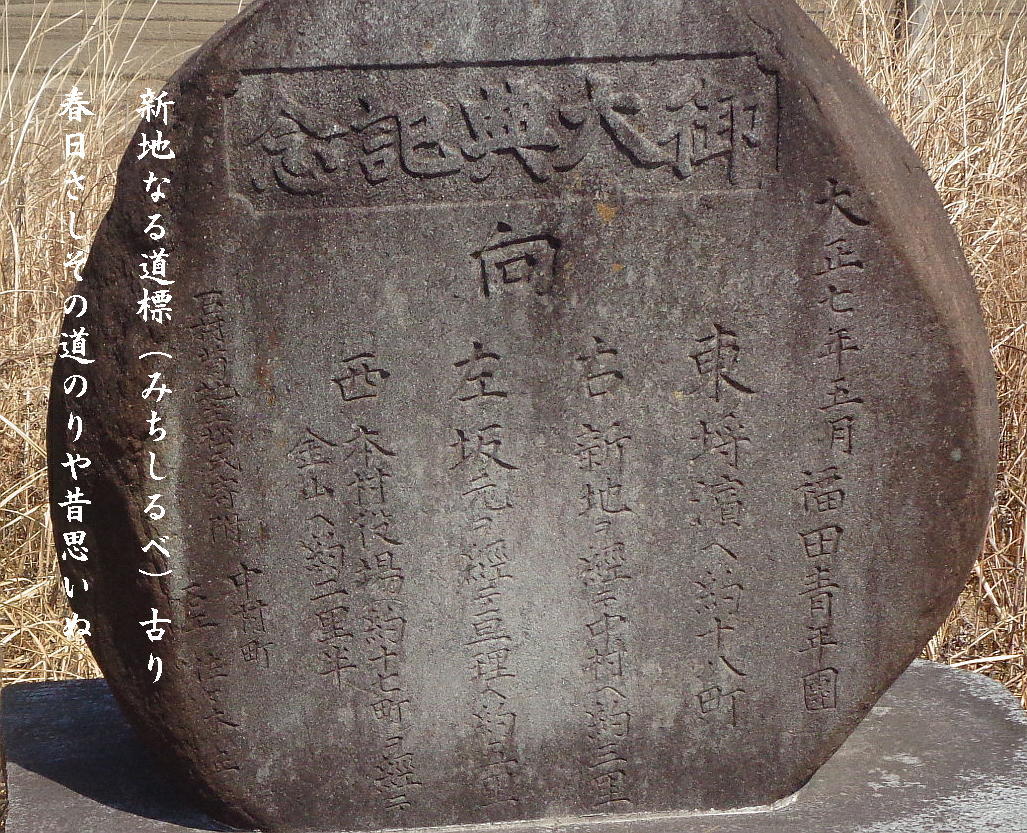 御大典記念
大正七年五月 福田青年團
向
東 埓濵ヘ約十八町
右 新地ヲ經テ中村ヘ約三里
左 坂元ヲ經テ亘理ヘ約
西 本村役場ヘ約十七町ヲ經テ
金山ヘ約二里半
寄附
中村町
新地なる道標(みちしるべ)古り
春日さしその道のりや昔思いぬ